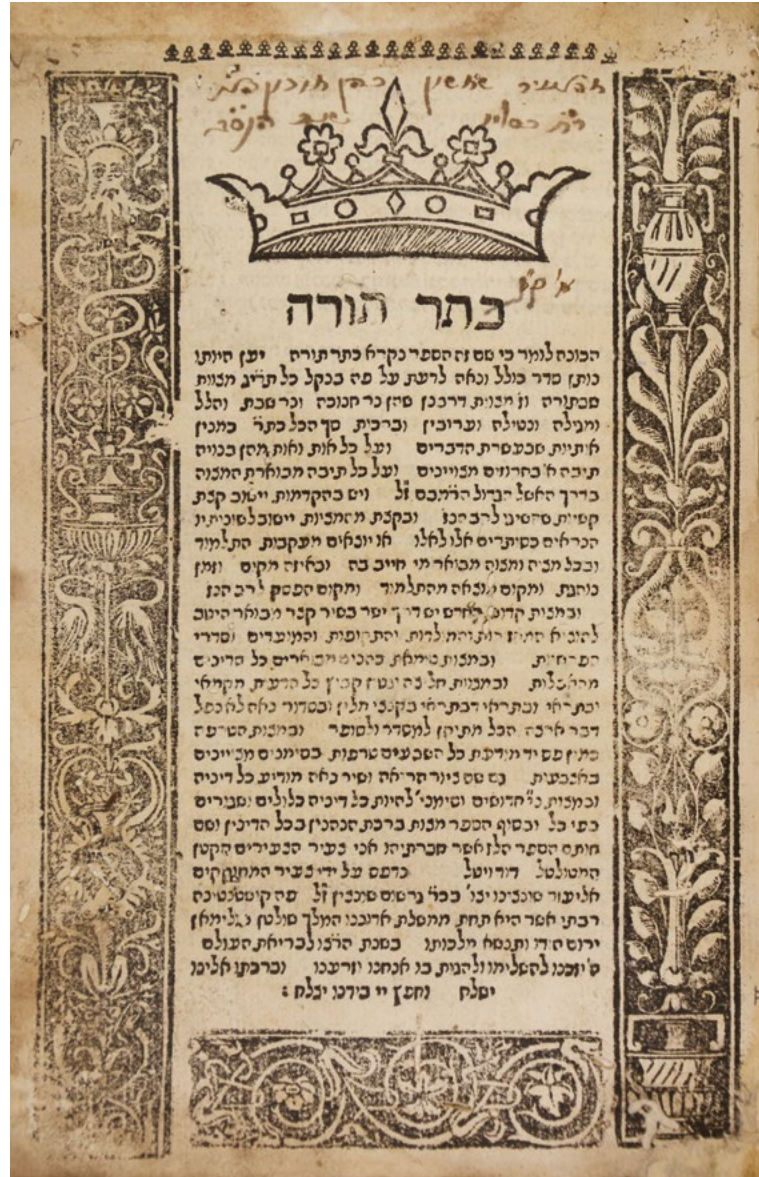 כתר תורה
הכונה לומר כי שם זה הספר נקרא כתר תורה יען היותו
נותן סדר כולל ונאה לדעת על פה בנקל כל תרי״ג מצוות
שבתורה וז׳ מצוות דרבנן שהן נר חנוכה ונר שבת והלל
ומגילה ונטילה ועריבין וברכות סך הכל כת״ר כמנין
אותיות שבעשרת הדברים ועל כל אות ואות מהן בנויה
תיבה א׳ בחרוזים מצויינים ועל כל תיבה מבוארת המצוה
בדרך האשל הגדול הרמב״ם ז״ל ויש בהקדמות יישוב קצת
קשיות שהשיגו לרב הנז׳ ובקצת מהמצות יישוב לשונותיו
הנראים כסותרים אלו לאלו או יוצאים מעקבות התלמוד
ובכל מצוה ומצוה מבואר מי חייב בה ובאיזה מקום וזמן
נוהגת ומקום מוצאה מהתלמוד ומקום הפסק לרב הנז׳
ובמצות קדוש החדש יש דרך ישר בשיר קצר מבואר היטב
להוציא המולדות והתקופות והמועדים וסדרי
הפרשיות ובמצות טומאת בהכיו מבוארים כל הדינים
ובמצות חליצה כל הדעות מקמאי
ובתראי ובתראי דבתראי בקצבי חלין ובסדור נאה לא נפל
דבר ארצה הכל מתוקן למסדר ולסופר ובמצות הטרפה
כל השבעים טרפות בסימנים מצויינים
באצבעות גם שם ציור הריאה ושיר נאה מודיע כל דיניה
להיות כל דיניה כלולים וסגורים
כפי כל ובסוף הספר מצות ברכת הנהנין בכל הדינין ושם
חותם הספר הלז אשר חברתיהו אני צעיר הצעירים הקטן
המטולטל דוד ויטל נדפס על ידי צעיר המחוקקים
אליעזר שונצינו יצו׳ בכ״ר גרשום שונצין ז״ל פה קושטנטינה
רבתי אשר היא תחת ממשלת אדוננו המלך שולטן סולימאן
ירום הודו ותנשא מלכותו בשנת הרצו לבריאת העולם
ה׳ יזכנו להשלימו ולהגות בו אנחנו וזרענו וברכתו אלינו
ישלח וחפץ יי בידנו יצלח